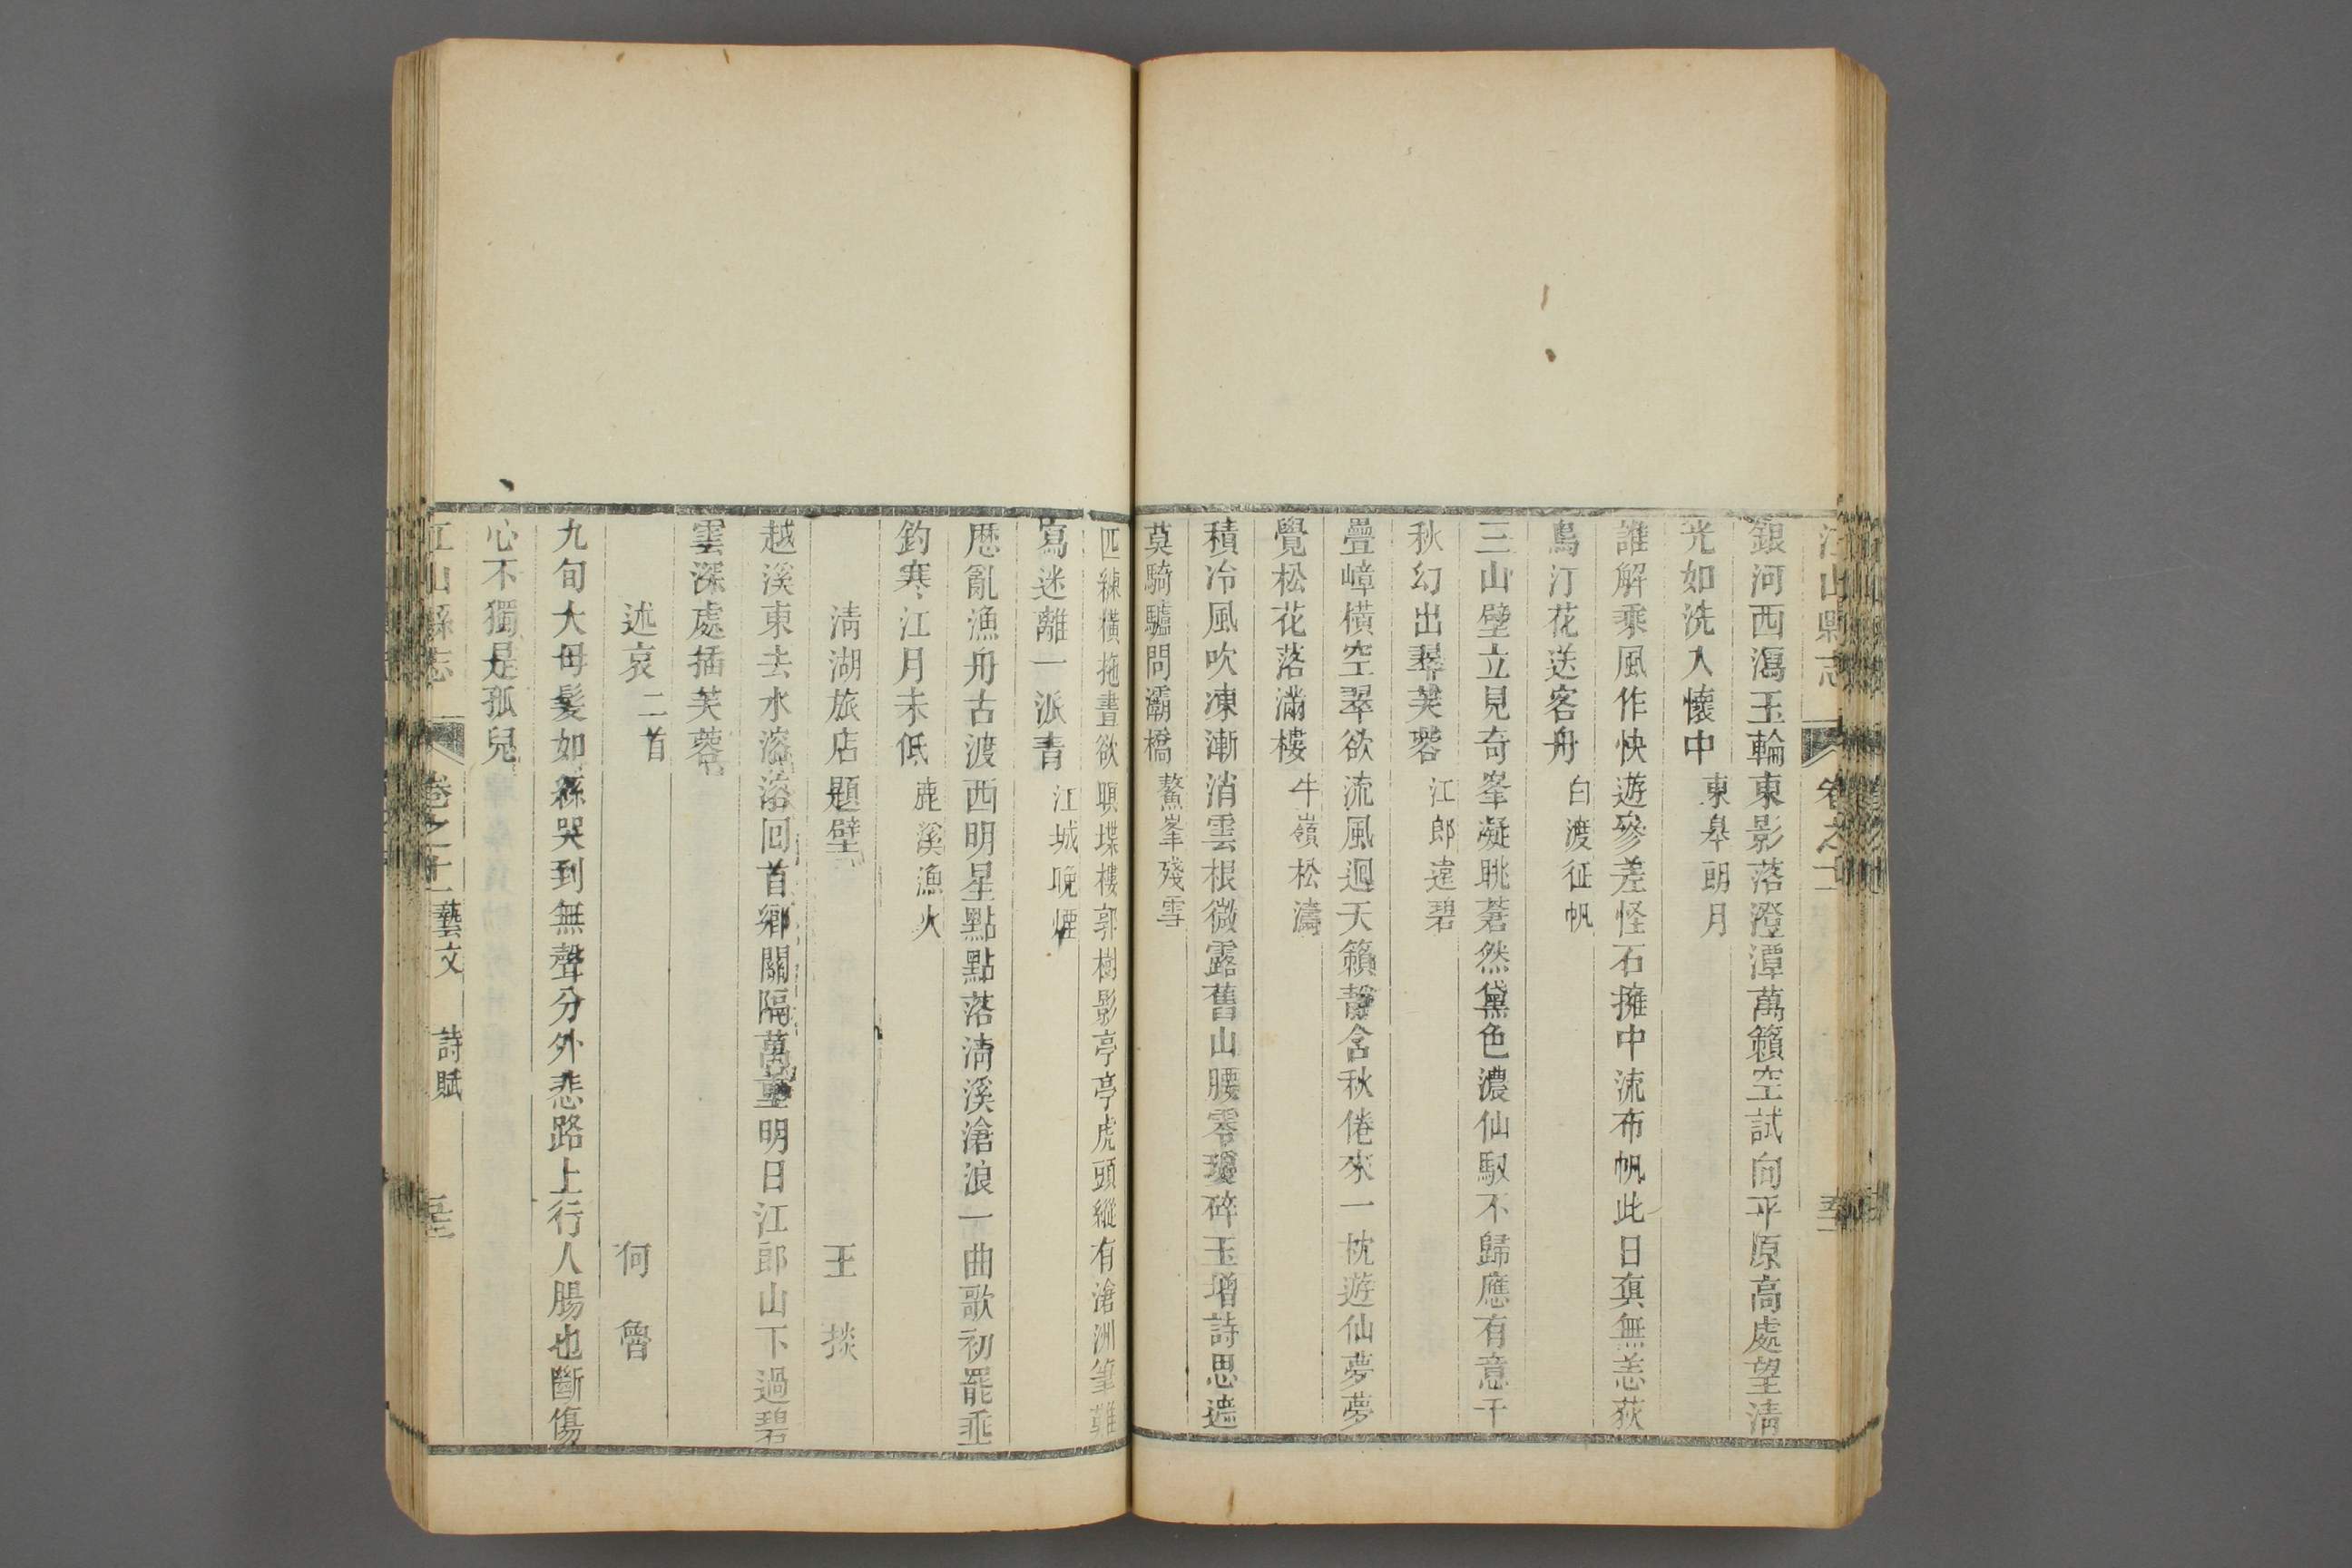 江山縣志 卷之十一
銀河西瀉玉輪東影落澄潭萬籟空試向平原高處望清
光如洗入懷中 東皋朗月
誰解乘風作快遊參差怪石擁中流布帆此日眞無恙荻
鳥汀花送客舟 白渡征帆
三山壁立見奇峯凝眺蒼然黛色濃仙馭不歸應有意千
秋幻出翠芙蓉 江郎遠碧
疊嶂橫空翠欲流風迴天籟靜含秋倦來一枕遊仙夢夢
覺松花落滿樓 牛嶺松濤
積冷風吹凍漸消雲根微露舊山腰零瓊碎玉增詩思遮
莫騎驢問灞橋 鰲峯殘雪
匹練橫拖畫欲暝堞樓郭樹影亭亭虎頭縱有滄洲筆難
寫迷離一派青 江城晚煙
歷亂漁舟古渡西明星點點落淸溪滄浪一曲歌初罷垂
釣寒江月未低 鹿溪漁火
淸湖旅店題壁 王掞
越溪東去水溶溶回首鄉關隔萬重明日江郎山下過碧
雲深處插芙蓉
述哀二首 何魯
九旬大母髮如絲哭到無聲分外悲路上行人腸也斷傷
心不獨是孤兒
江山縣志 卷之十一 藝文 詩賦